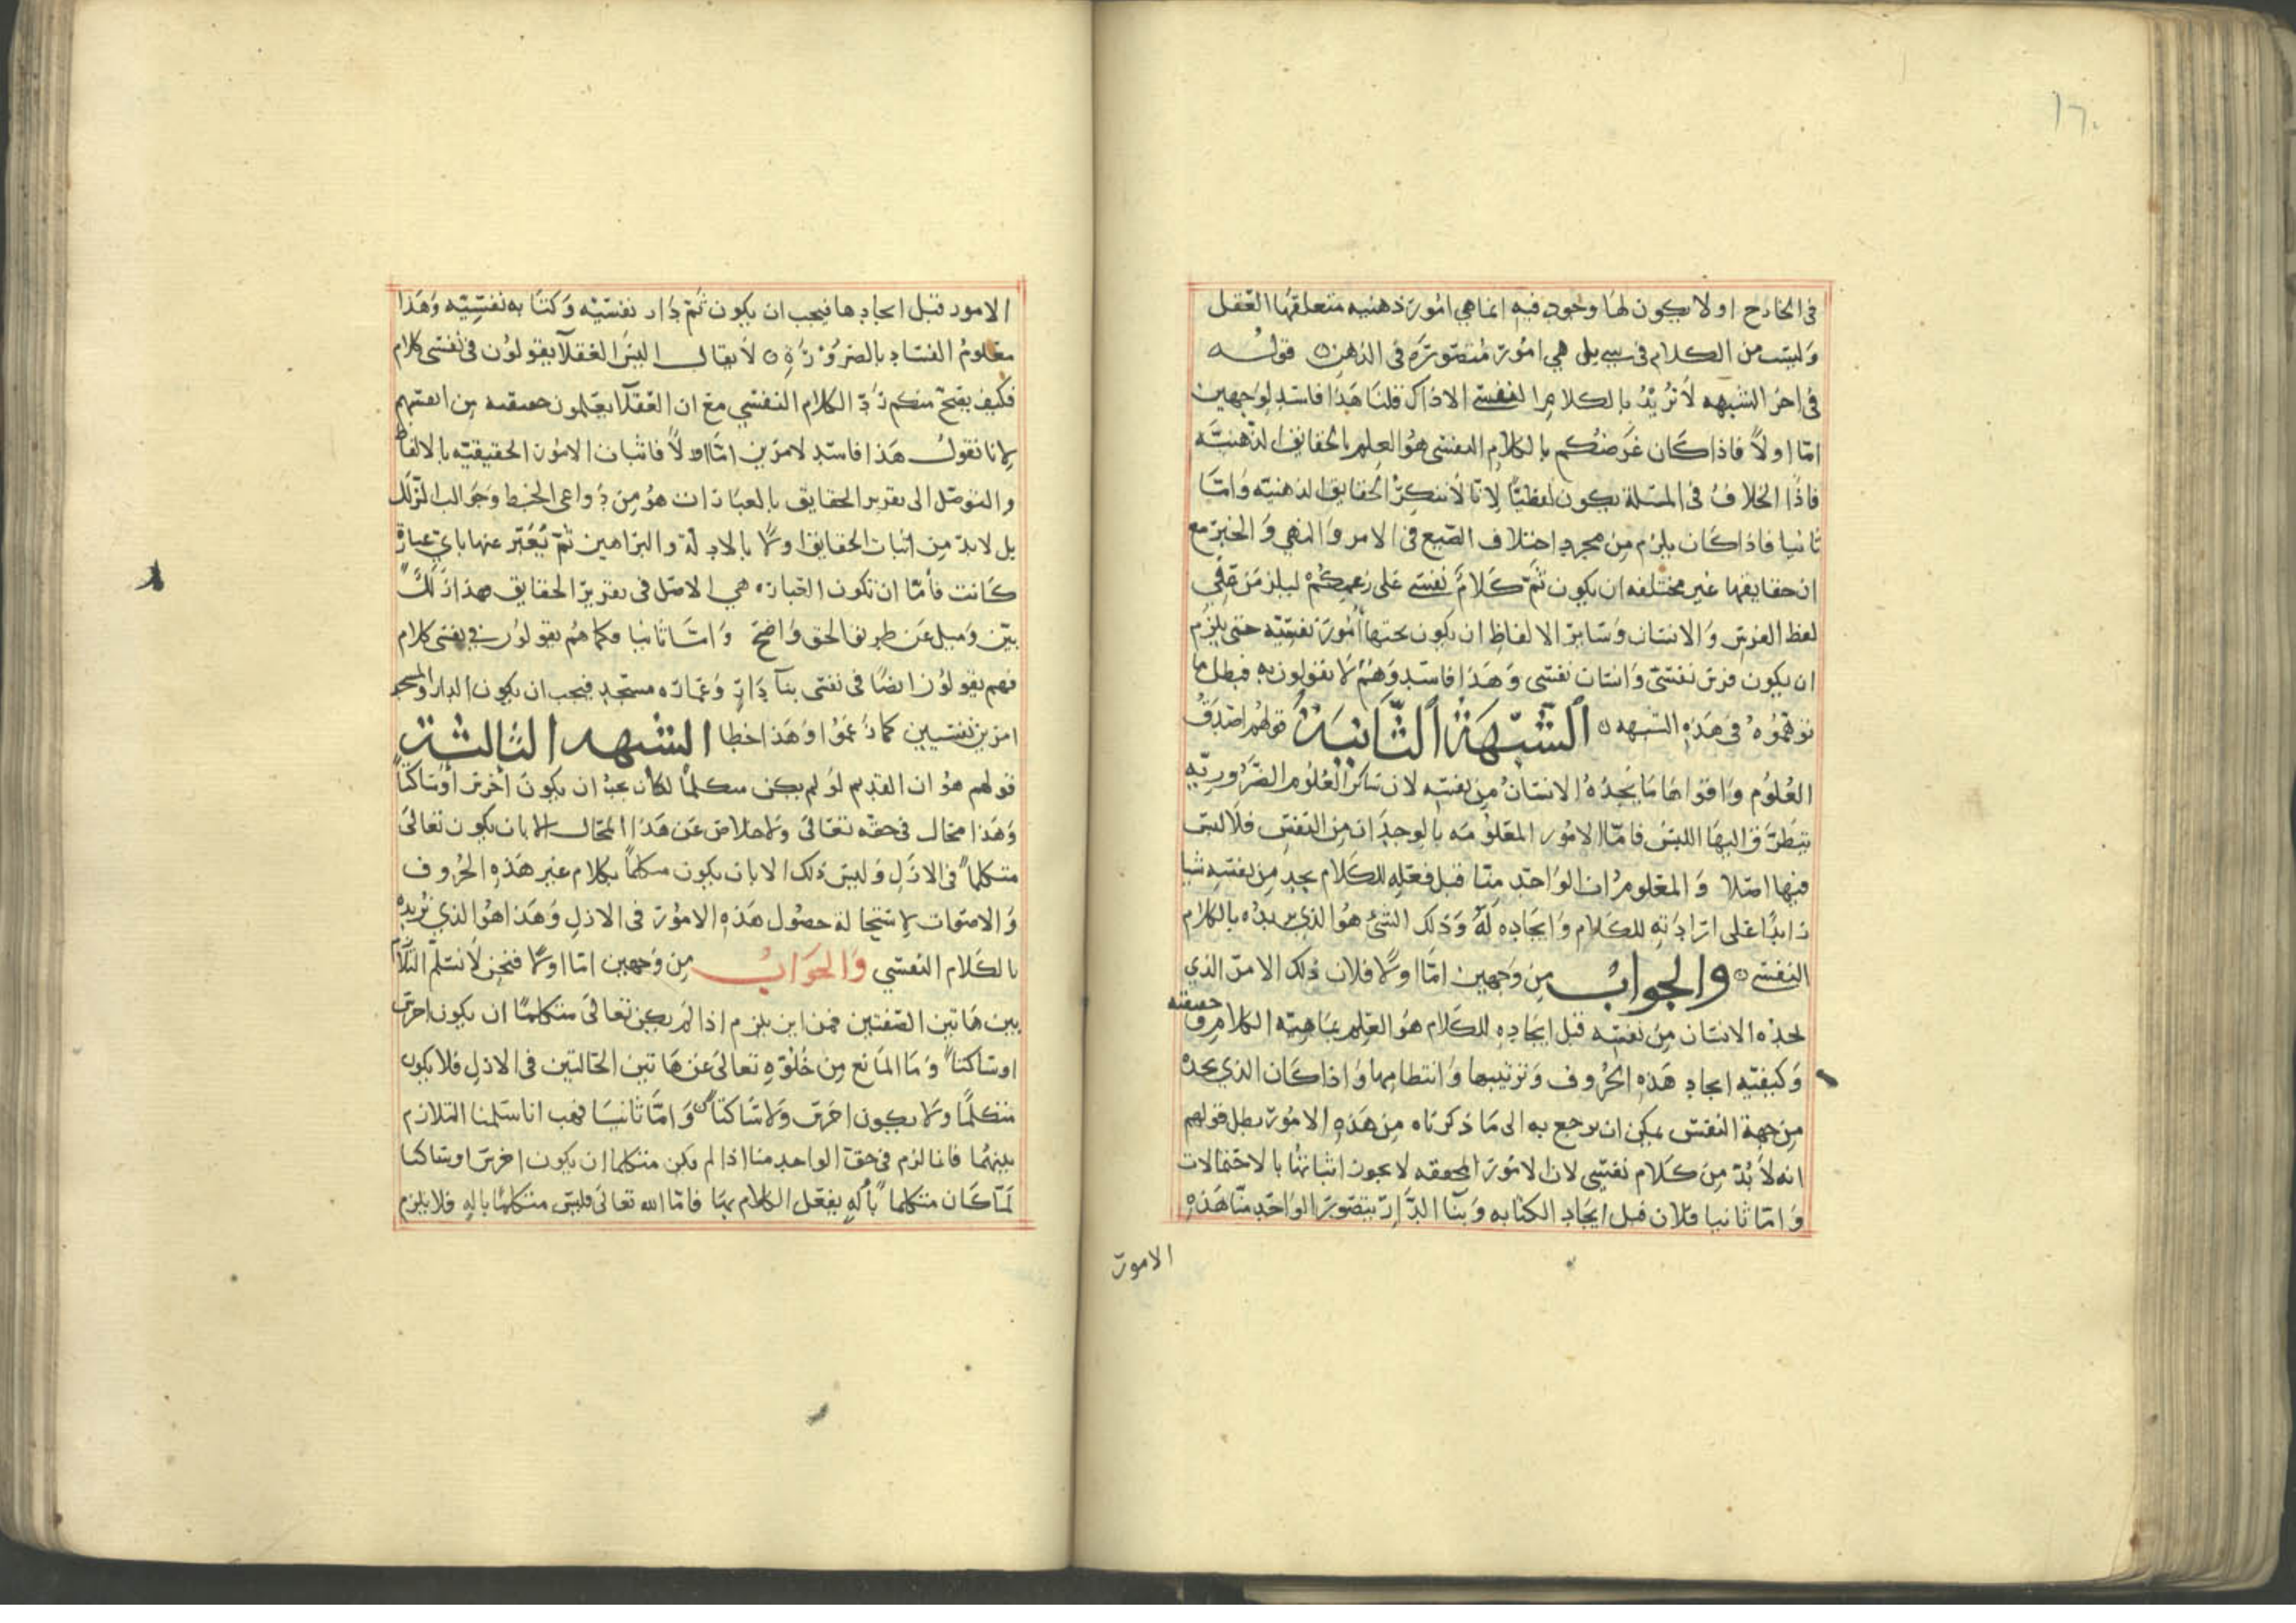 ١٦٠
في الخارج او لا يكون لها وجود فيه انما هي امور ذهنيه متعلقها العقل
وليست من الكلام في سبيل هي امور متصورة في الذهن ٥ قوله
في اخر الشبهه لا نريد بالكلام النفسي الا ذاك قلنا هذا فاسد لوجهين
امّا اولاً فاذا كان غرضكم بالكلام النفسي هو العلم بالحقايق الذهنيّه
فاذًا الخلاف في المسلة يكون لفظيًا لانّا لا ننكر الحقايق الذهنيه وامّا
ثانيا فاذا كان يلزم من مجرد اختلاف الصّيغ في الامر والنهي والخبر مع
ان حقايقها غير مختلفه ان يكون ثمّ كلامٌ نفسي على زعمكم ليلزمن في
لفظ الفرس والانسان وساير الالفاظ ان يكون تحتها امور نفسيّه حتى يلزم
ان يكون فرس نفسيّ وانسان نفسي وهذا فاسد وهم لا يقولون به فبطل ما
توهموه في هذه الشبهه ٥ الشبهة الثانية قولهم اصدق
العلوم واقواها ما يجده الانسان من نفسه لان ساير العلوم الضروريّه
يتطرّق اليها اللبس فامّا الامور المعلومه بالوجدان من النفس فلا لبس
فيها اصلا والمعلوم ان الواحد منّا قبل فعله للكلام يجد من نفسه شيا
زايدًا على ارادته للكلام وايجاده له وذلك الشئ هو الذي نريده بالكلام
النفسي ٥ والجواب من وجهين امّا اولا فلان ذلك الامر الذي
يجده الانسان من نفسه قبل ايجاده للكلام هو العلم بماهيّه الكلام و حقيقته
وكيفيّه ايجاد هذه الحروف وترتيبها وانتظامها واذا كان الذي يجده
من جهة النفس يمكن ان يرجع به الى ما ذكرناه من هذه الامور بطل قولهم
انه لا بدّ من كلام نفسي لان الامور المحققه لا يجوز اثباتها بالاحتمالات
وامّا ثانيا فلان قبل ايجاد الكتابه وبنا الدّار يتصور الواحد منّا هذه
الامور
الامور قبل ايجادها فيجب ان يكون ثمّ دار نفسيّه وكتابه نفسيّه وهذا
معلوم الفساد بالضرورة ٥ لا يقال اليس العقلا يقولون في نفسي كلام
فكيف يصحّ منكم ردّ الكلام النفسي مع ان العقلا يعلمون حقيقته من انفسهم
لانا نقول هذا فاسد لامرين امّا اولاً فاثبات الامور الحقيقيّه بالالفاظ
والتوصّل الى تقرير الحقايق بالعبارات هو من دواعي الخبط وجوالب الزلل
بل لا بدّ من اثبات الحقايق اولا بالادلّة والبراهين ثمّ يُعبّر عنها بايّ عبارة
كانت فأمّا ان تكون العباره هي الاصل في تقرير الحقايق فهذا زلل
بيّن وميل عن طريق الحق واضح وامّا ثانيا فكما هم يقولون في نفسي كلام
فهم يقولون ايضًا في نفسي بنا دار وعماره مسجد فيجب ان يكون الدار والمسجد
امرين نفسيين كما زعموا وهذا خطا الشبهه الثالثة
قولهم هو ان القديم لو لم يكن متكلمًا لكان يجب ان يكون اخرس او ساكتًا
وهذا محال في حقه تعالى ولا خلاص عن هذا المحال الا بان يكون تعالى
متكلمًا في الازل وليس ذلك الا بان يكون متكلمًا بكلام غير هذه الحروف
والاصوات لاستحالة حصول هذه الامور في الازل وهذا هو الذي نريده
بالكلام النفسي والجواب من وجهين امّا اولا فنحن لا نسلّم التلازم
بين هاتين الصّفتين فمن اين يلزم اذا لم يكن تعالى متكلمًا ان يكون اخرس
او ساكتًا وما المانع من خلوّه تعالى عن هاتين الحالتين في الازل فلا يكون
متكلمًا ولا يكون اخرس ولا ساكتًا ٥ وامّا ثانيا فهب انا سلمنا التلازم
بينهما فانما لزم في حق الواحد منا اذا لم يكن متكلما ان يكون اخرس او ساكتا
لمّا كان متكلما بآله يفعل الكلام بها فامّا الله تعالى فليس متكلمًا باله فلا يلزم